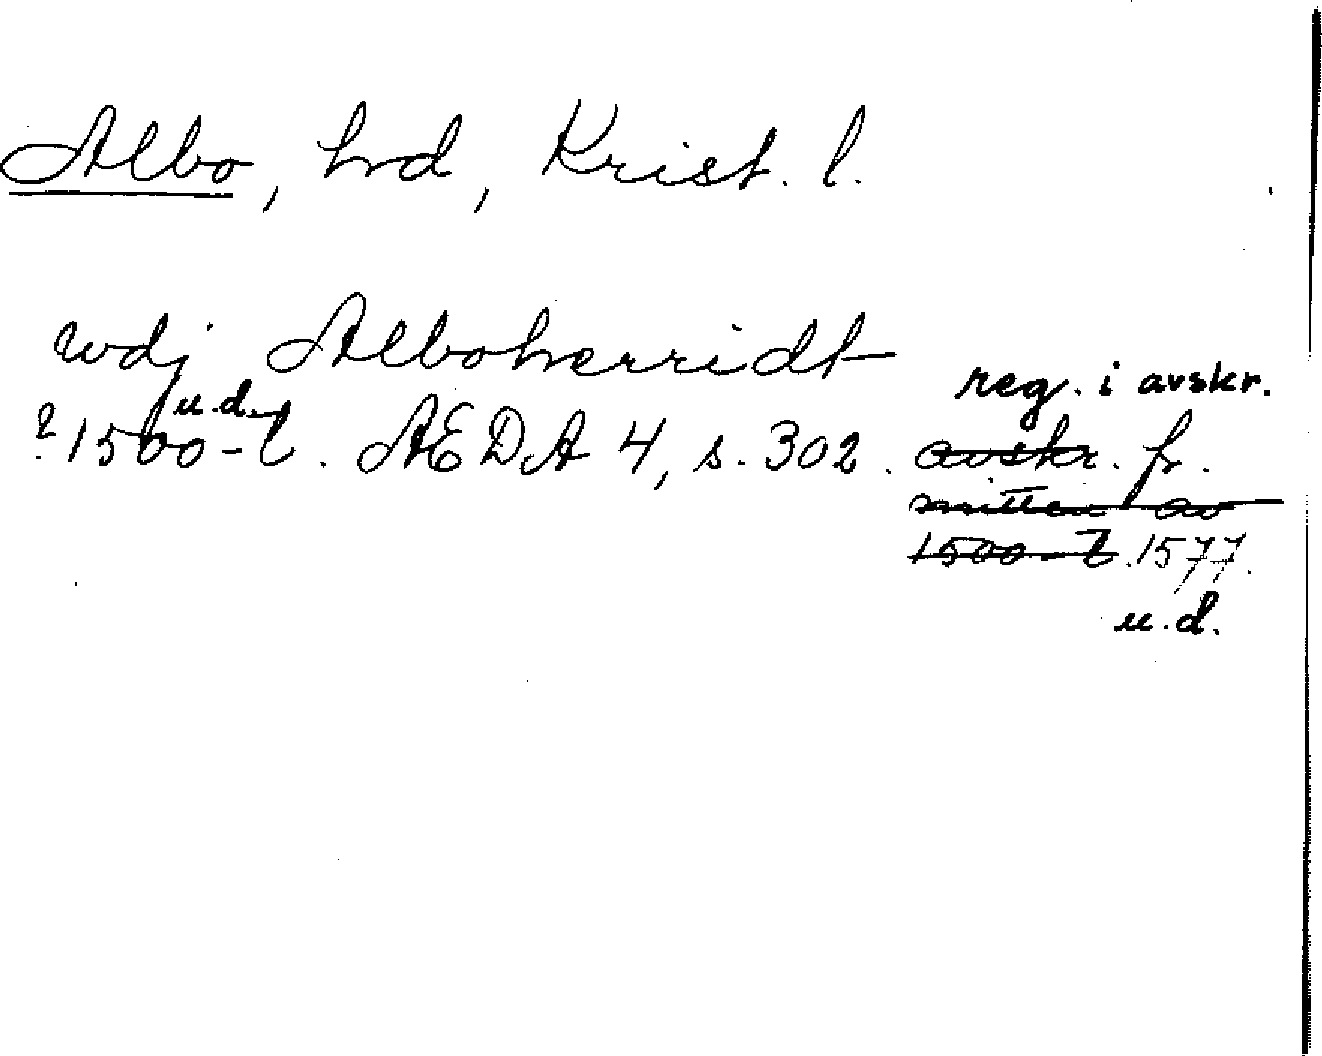 Albo, hrd, Krist. l.
wdj Alboherridt
u.d.
?1500-t. AEDA 4, s. 302.
reg. i avskr.
avskr. fr.
mitten av
1500-t. 1577.
u.d.